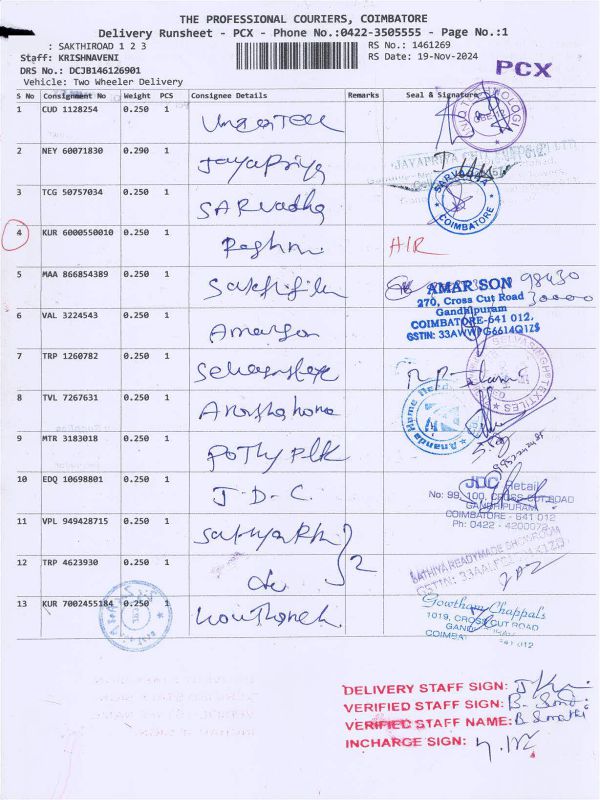 THE PROFESSIONAL COURIERS, COIMBATORE
Delivery Runsheet - PCX - Phone No.:0422-3505555 - Page No.:1
: SAKTHIROAD 1 2 3
RS No.: 1461269
Staff: KRISHNAVENI
RS Date: 19-Nov-2024
DRS No.: DCJB146126901
PCX
Vehicle: Two Wheeler Delivery
S No Consignment No Weight PCS Consignee Details Remarks Seal & Signature
1 CUD 1128254 0.250 1
2 NEY 60071830 0.290 1 Jayapriya
3 TCG 50757034 0.250 1 SARvadha
SARVADHA
COIMBATORE
4 KUR 6000550010 0.250 1 AIR
5 MAA 866854389 0.250 1
AMAR SON 98430
270, Cross Cut Road 30000
Gandhipuram
COIMBATORE-641 012.
GSTIN: 33AWWPG6614Q1ZS
6 VAL 3224543 0.250 1 Amarson
7 TRP 1260782 0.250 1
8 TVL 7267631 0.250 1
Ananda Home Needs
9 MTR 3183018 0.250 1 POTHY
10 EDQ 10698801 0.250 1 J.D.C.
JDC Retail
No: 99, 100, CROSS CUT ROAD
GANDHIPURAM
COIMBATORE - 641 012
Ph: 0422 - 4200072
11 VPL 949428715 0.250 1
SATHIYA READYMADE SHOWROOM
12 TRP 4623930 0.250 1 do } 2
13 KUR 7002455184 0.250 1
Gowtham Chappals
1019, CROSS CUT ROAD
DELIVERY STAFF SIGN:
VERIFIED STAFF SIGN:
VERIFIED STAFF NAME:
INCHARGE SIGN: